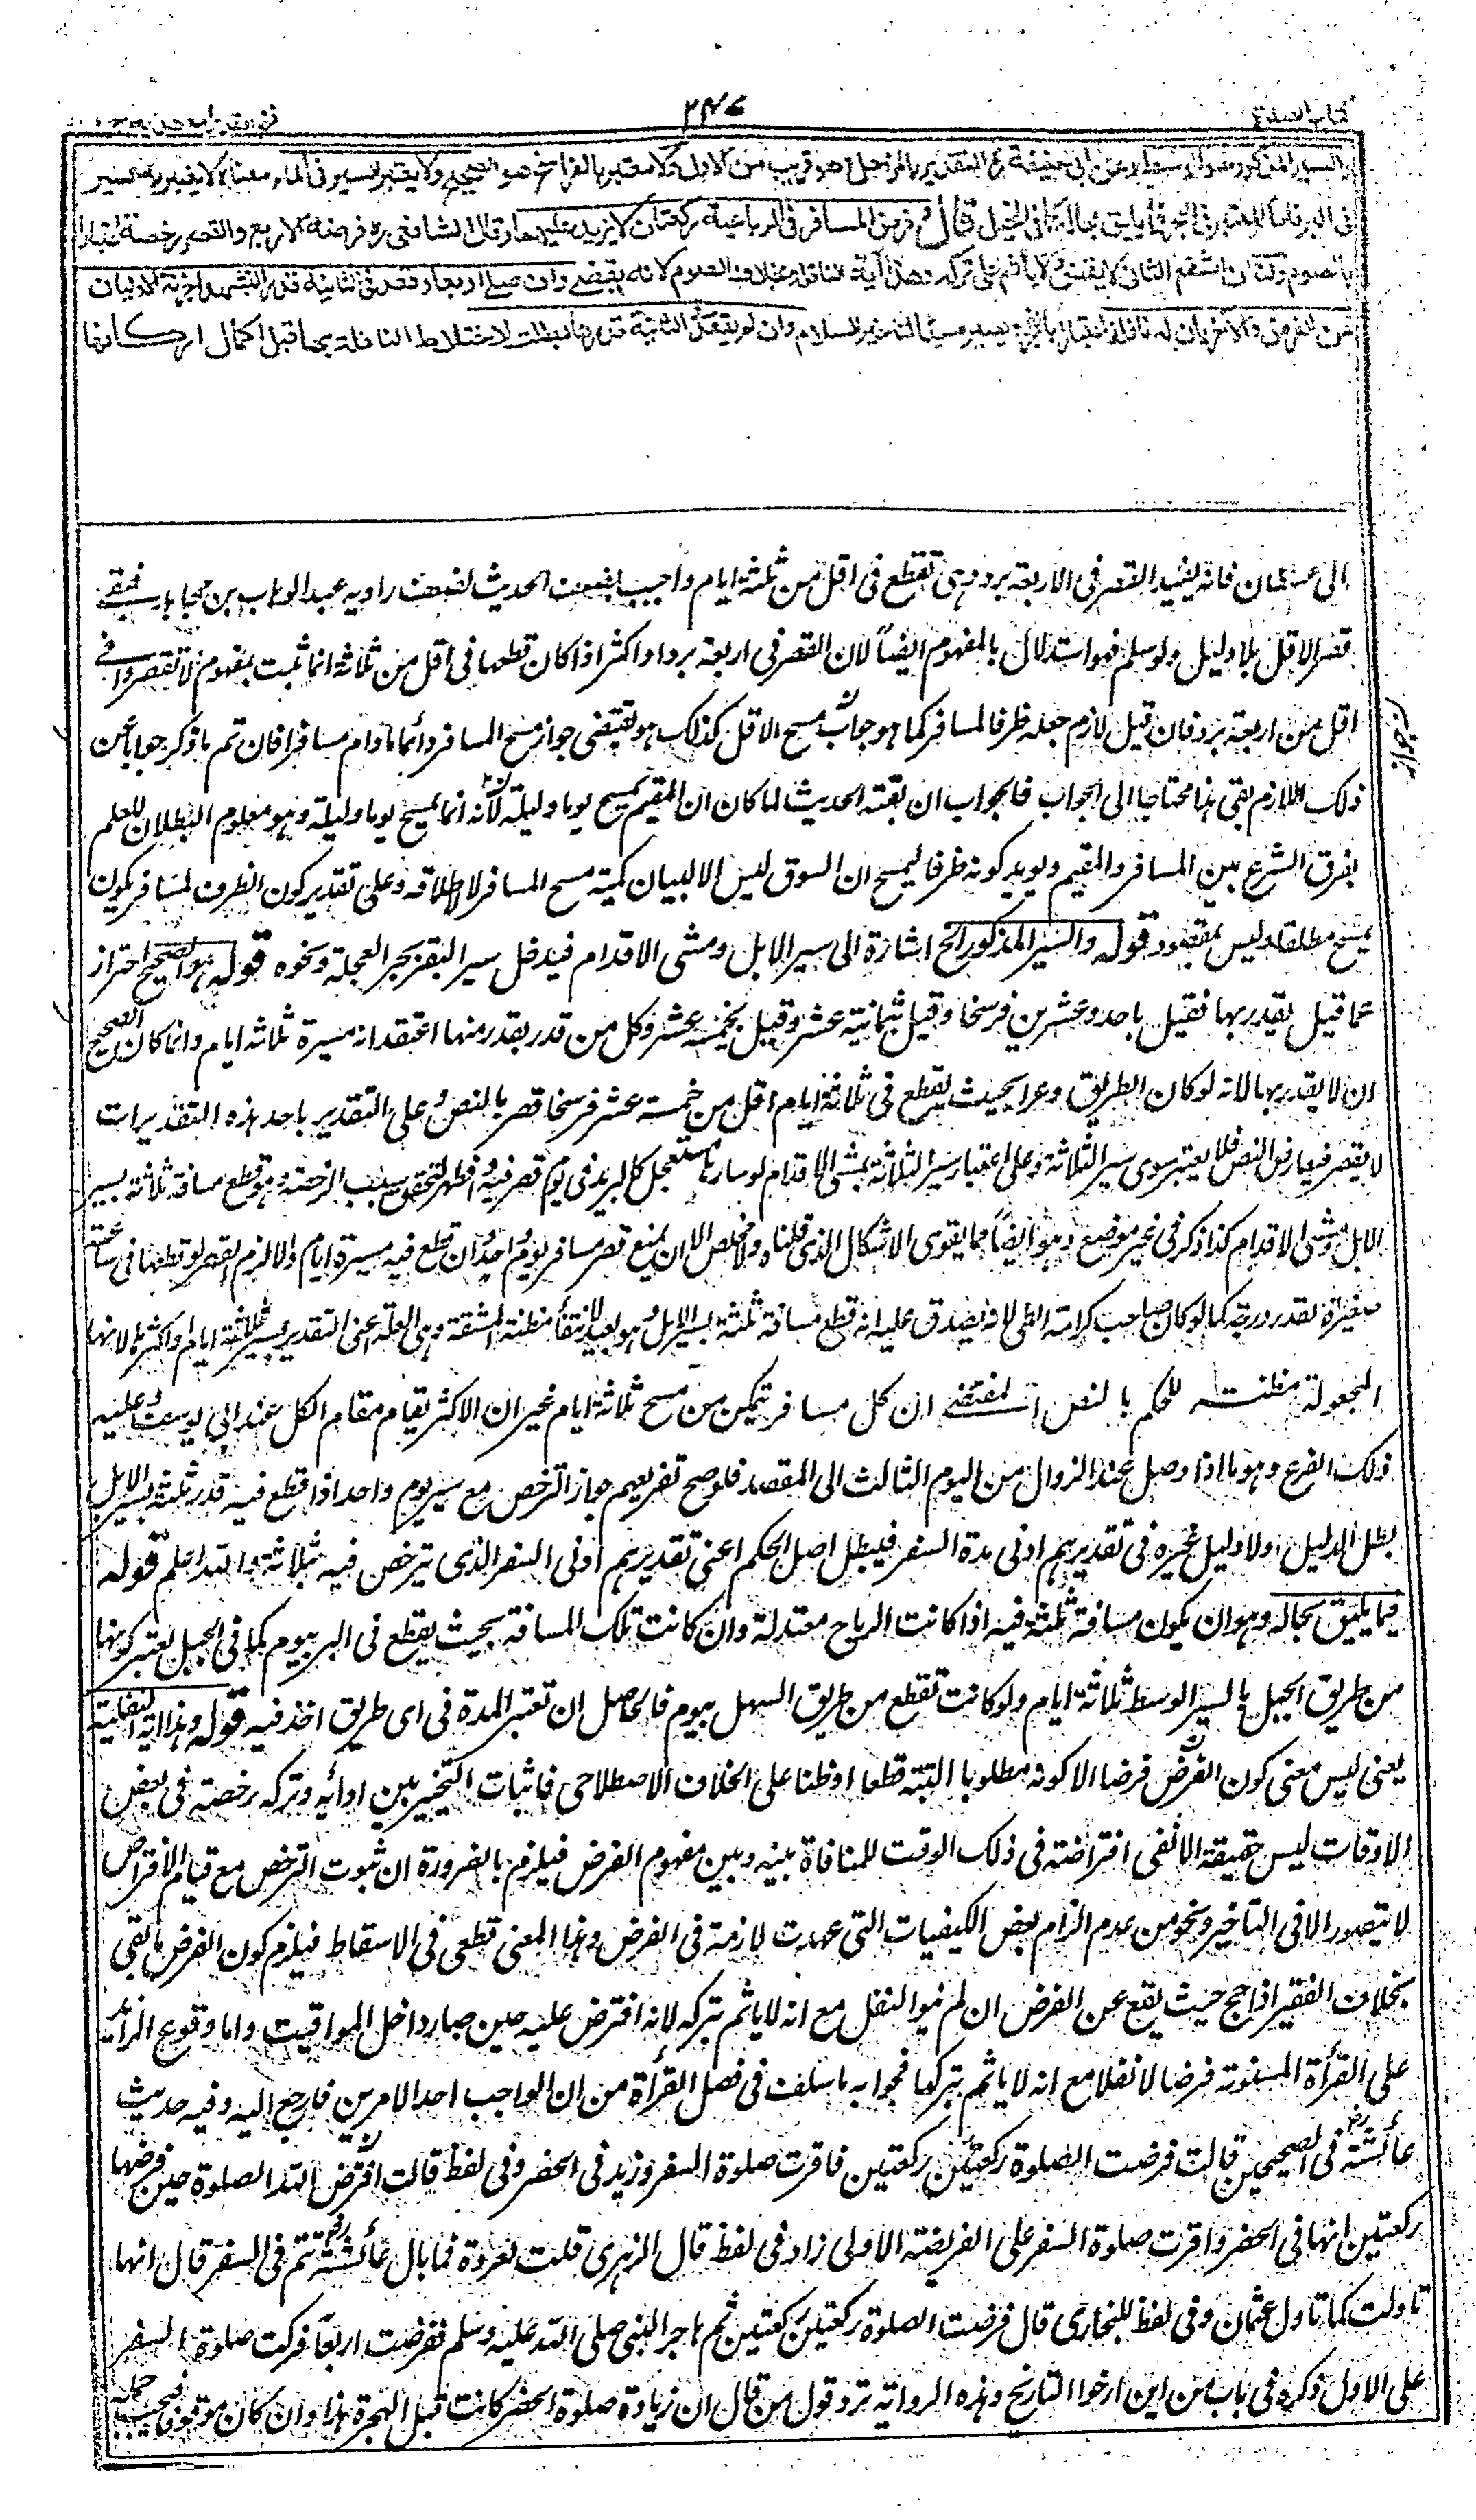 كتاب الصلوة
٢٤٦
والسير المذكور هو الوسط وعن ابى حنيفة التقدير بالمراحل وهو قريب من الاول ولا معتبر بالفراسخ هو الصحيح ولا يعتبر السير فى الماء معناه لا يعتبر به السير
فى البر فاما المعتبر فى البحر فما يليق بحاله كما فى الجبل قال وفرض المسافر فى الرباعية ركعتان لا يزيد عليهما وقال الشافعى ره فرضه الاربع والقصر رخصة اعتبارا
بالصوم ولنا ان الشفع الثانى لا يقضى ولا ياثم على تركه وهذا آية النافلة بخلاف الصوم لانه يقضى وان صلى اربعا وقعد فى الثانية قدر التشهد اجزته الاوليان
عن الفرض والاخريان له نافلة اعتبارا بالفجر ويصير مسيئا لتاخير السلام وان لم يقعد فى الثانية قدرها بطلت لاختلاط النافلة بها قبل اكمال اركانها
الى عسفان فانه يفيد القصر فى الاربعة برد وهى تقطع فى اقل من ثلثة ايام واجيب بضعف الحديث لضعف راويه عبد الوهاب بن مجاهد فبقى
قصر الاقل بلا دليل ولو سلم فهو استدلال بالمفهوم ايضاً لان القصر فى اربعة برد او اكثر اذا كان قطعها فى اقل من ثلاثة انما ثبت بمفهوم لا تقصروا فى
اقل من اربعة برد فان قيل لازم جعله ظرفا لمسافر كما هو جواز مسح الاقل كذلك هو يقتضى جواز مسح المسافر دائما مادام مسافرا فان تم ما ذكر جوابا عن
ذلك اللازم بقى هذا محتاجا الى الجواب فالجواب ان بقية الحديث لما كان ان المقيم يمسح يوما وليلة لانه انما يمسح يوما وليلة وهو معلوم البطلان للعلم
بفرق الشرع بين المسافر والمقيم ويويد كونه ظرفا ليمسح ان السوق ليس الا لبيان كمية مسح المسافر لا لاطلاقه وعلى تقدير كون الظرف لمسافر يكون
يمسح مطلقا وليس بمقصود قوله والسير المذكور الخ اشارة الى سير الابل ومشى الاقدام فيدخل سير البقر بجر العجلة ونحوه قوله هو الصحيح احتراز
عما قيل يقدر بها فقيل باحد وعشرين فرسخا وقيل بثمانية عشر وقيل بخمسة عشر وكل من قدر بقدر منها اعتقد انه مسيرة ثلاثة ايام وانما كان الصحيح
ان لا يقدر بها لانه لو كان الطريق وعرا بحيث يقطع فى ثلاثة ايام اقل من خمسة عشر فرسخا قصر بالنص وعلى التقدير باحد هذه التقديرات
لا يقصر فيعارض النص فلا يعتبر سوى سير الثلاثة وعلى اعتبار سير الثلاثة بمشى الاقدام لو سارها مستعجل كالبريد فى يوم قصر فيه وافطر لتحقق سبب الرخصة وهو قطع مسافة ثلاثة بسير
الابل ومشى الاقدام كذا ذكر فى غير موضع وهو ايضاً مما يقوى الاشكال الذى قلناه ولا مخلص الا ان يمنع قصر مسافر يوم واحد وان قطع فيه مسيرة ايام والا لزم القصر لو قطعها فى ساعة
صغيرة بقدر درجة كما لو كان صاحب كرامة الطى لانه يصدق عليه انه قطع مسافة ثلثة بسير الابل وهو بعيد لانتفاء مظنة المشقة وهى العلة اعنى التقدير بسير ثلاثة ايام او اكثرها لانها
المجعولة مظنة للحكم بالنص المقتضى ان كل مسافر يتمكن من مسح ثلاثة ايام غير ان الاكثر يقام مقام الكل عند ابى يوسف وعليه
ذلك الفرع وهو ما اذا وصل عند الزوال من اليوم الثالث الى المقصد فلو صح تفريعهم جواز الترخص مع سير يوم واحد اذا قطع فيه قدر ثلثة بسير الابل
بطل الدليل ولا دليل غيره فى تقديرهم ادنى مدة السفر فيبطل اصل الحكم اعنى تقديرهم ادنى السفر الذى يترخص فيه بثلاثة والله اعلم قوله
فيما يليق بحاله وهو ان يكون مسافة ثلثة فيه اذا كانت الرياح معتدلة وان كانت تلك المسافة بحيث يقطع فى البر بيوم كما فى الجبل يعتبر كونها
من طريق الجبل بالسير الوسط ثلاثة ايام ولو كانت تقطع من طريق السهل بيوم فالحاصل ان تعتبر المدة فى اى طريق اخذ فيه قوله وهذا اية النفلية
يعنى ليس معنى كون الفرض فرضا الا كونه مطلوبا البتة قطعا او ظنا على الخلاف الاصطلاحى فاثبات التخيير بين ادائه وتركه رخصة فى بعض
الاوقات ليس حقيقة الا نفى افتراضه فى ذلك الوقت للمنافاة بينه وبين مفهوم الفرض فيلزم بالضرورة ان ثبوت الترخص مع قيام الافتراض
لا يتصور الا فى التاخير ونحو من عدم الزام بعض الكيفيات التى عهدت لازمة فى الفرض وهذا المعنى قطعى فى الاسقاط فيلزم كون الفرض ما بقى
بخلاف الفقير اذا حج حيث يقع عن الفرض ان لم ينو النفل مع انه لا ياثم بتركه لانه افترض عليه حين صار داخل المواقيت واما وقوع الزائد
على القرأة المسنونة فرضا لا نفلا مع انه لا ياثم بتركها فجوابه ما سلف فى فصل القرأة من ان الواجب احد الامرين فارجع اليه وفيه حديث
عائشة رض فى الصحيحين قالت فرضت الصلوة ركعتين ركعتين فاقرت صلوة السفر وزيد فى الحضر وفى لفظ قالت افترض الله الصلوة حين فرضها
ركعتين اتمها فى الحضر واقرت صلوة السفر على الفريضة الاولى زاد فى لفظ قال الزهرى قلت لعروة فما بال عائشة رض تتم فى السفر قال انها
تاولت كما تاول عثمان وفى لفظ للبخارى قال فرضت الصلوة ركعتين ركعتين ثم هاجر النبى صلى الله عليه وسلم ففرضت اربعا فتركت صلوة السفر
على الاول ذكره فى باب من اين ارخوا التاريخ وهذه الرواية ترد قول من قال ان زيادة صلوة الحضر كانت قبل الهجرة هذا وان كان موقوفا فيجب حمله